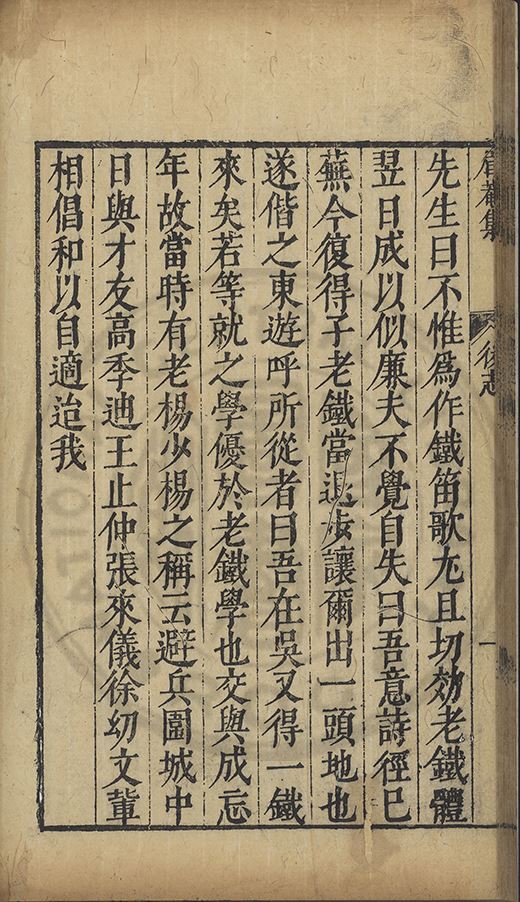 眉菴集
後志
一
先生曰不惟為作鐵笛歌尤且切効老鐵體
翌日成以似廉夫不覺自失曰吾意詩徑已
蕪今復得子老鐵當退步讓爾出一頭地也
遂偕之東遊呼所從者曰吾在吳又得一鐵
來矣若等就之學優於老鐵學也交與成忘
年故當時有老楊少楊之稱云避兵圍城中
日與才友高季迪王止仲張來儀徐幼文輩
相倡和以自適迨我